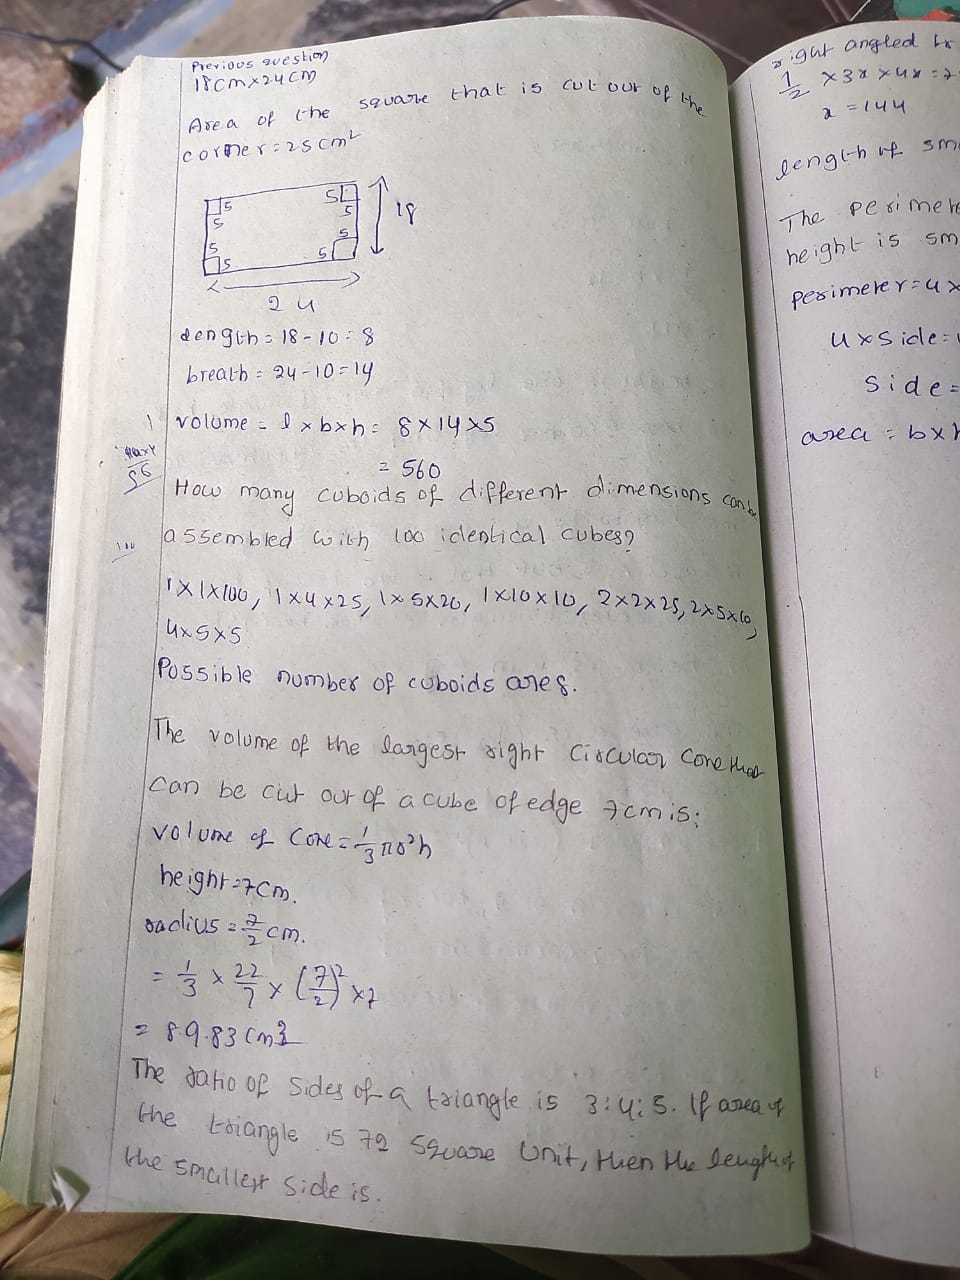 Previous question
18cm×24cm
Area of the square that is cut out of the
corner=25cm²
5 5
5 5
18
5 5
5 5
24
length = 18-10=8
breath = 24-10=14
volume = l×b×h = 8×14×5
= 560
56
How many cuboids of different dimensions can be
assembled with 100 identical cubes?
1×1×100, 1×4×25, 1×5×20, 1×10×10, 2×2×25, 2×5×10,
4×5×5
Possible number of cuboids are 8.
The volume of the largest right circular cone that
can be cut out of a cube of edge 7cm is:
volume of Cone = 1/3 πr²h
height=7cm.
radius = 7/2 cm.
= 1/3 × 22/7 × (7/2)² ×7
= 89.83 cm3
The ratio of sides of a triangle is 3:4:5. If area of
the triangle is 72 square unit, then the length of
the smallest side is.
right angled
1/2 ×3x×4x=7
x=144
length of sm
The perimete
height is sm
perimeter=4×
4×side=
Side=
area = b×h